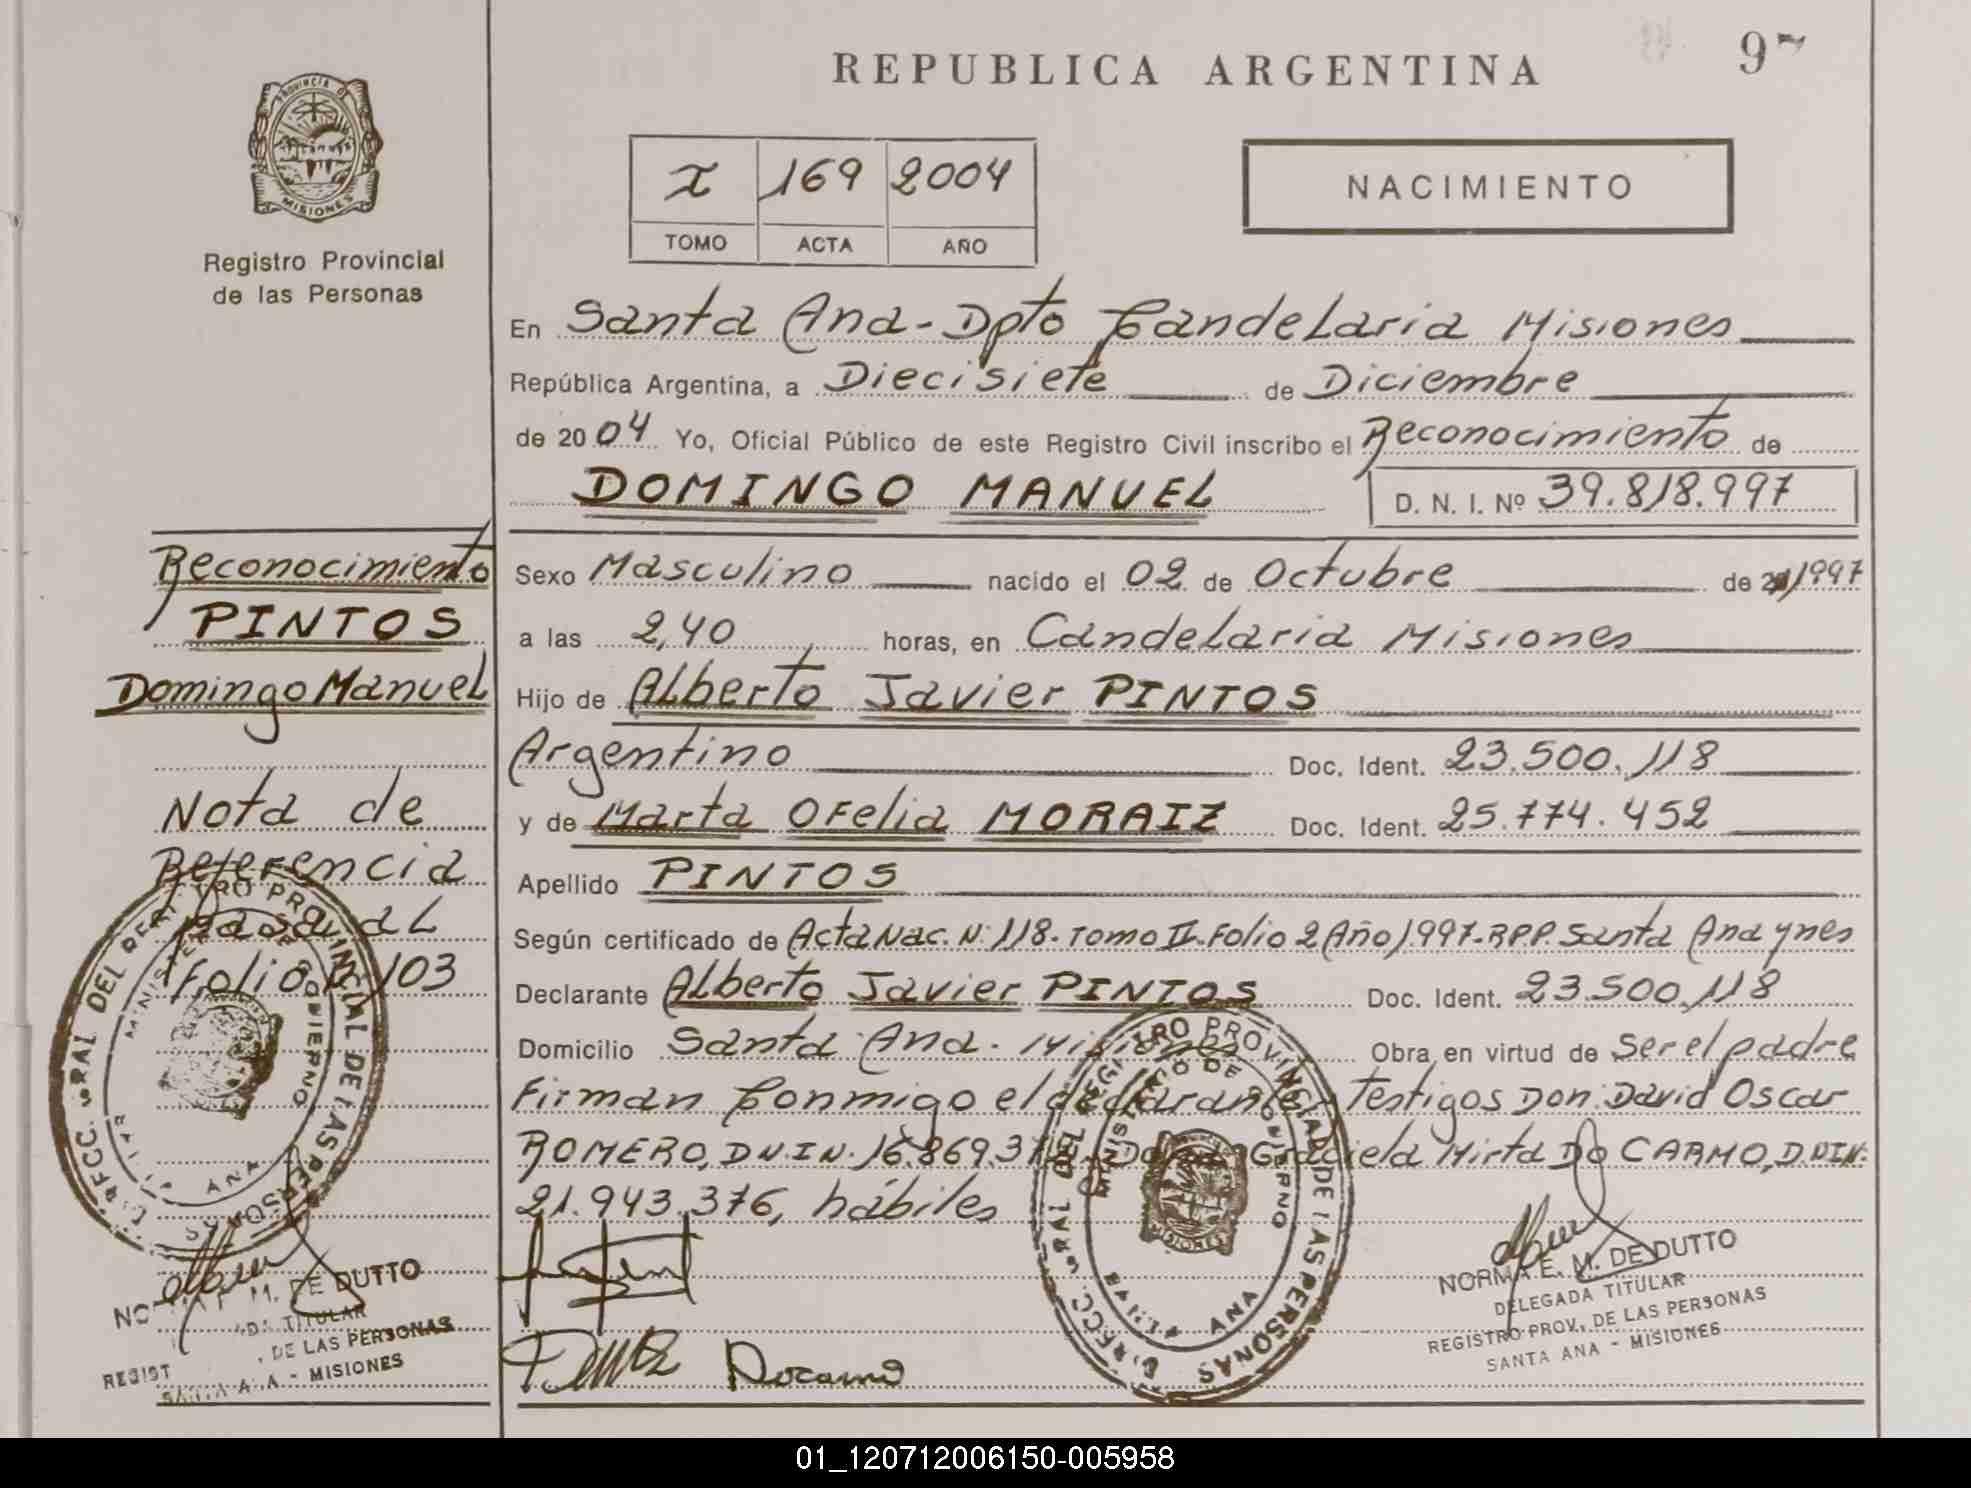 REPUBLICA ARGENTINA
97
PROVINCIA DE
MISIONES
Registro Provincial
de las Personas
I 169 2004
TOMO ACTA AÑO
NACIMIENTO
En Santa Ana - Dpto Candelaria Misiones
República Argentina, a Diecisiete de Diciembre
de 2004 Yo, Oficial Público de este Registro Civil inscribo el Reconocimiento de
DOMINGO MANUEL D. N. I. Nº 39.818.997
Sexo Masculino nacido el 02 de Octubre de 1997
a las 2,40 horas, en Candelaria Misiones
Hijo de Alberto Javier PINTOS
Argentino Doc. Ident. 23.500.118
y de Marta Ofelia MORAIZ Doc. Ident. 25.774.452
Apellido PINTOS
Según certificado de Acta Nac. N. 118. Tomo II. Folio 2 Año 1997. RPP. Santa Ana ynes
Declarante Alberto Javier PINTOS Doc. Ident. 23.500.118
Domicilio Santa Ana. Misiones Obra en virtud de Ser el padre
Firman Conmigo el declarante Testigos Don. David Oscar
ROMERO, DNIN. 16.869.3 Graciela Mirta Do CARMO, D.NIN.
21.943.376, hábiles
Reconocimiento
PINTOS
Domingo Manuel
Nota de
Referencia
pasa al
folio 103
DIRECC. GRAL DEL REGISTRO PROVINCIAL DE LAS PERSONAS
MINISTERIO DE GOBIERNO
ANA
NORMA E. M. DE DUTTO
DELEGADA TITULAR
REGISTRO PROV. DE LAS PERSONAS
SANTA ANA - MISIONES
DIRECC. GRAL DEL REGISTRO PROVINCIAL DE LAS PERSONAS
MINISTERIO DE GOBIERNO
MISIONES
ANA
Docarmo
NORMA E. M. DE DUTTO
DELEGADA TITULAR
REGISTRO PROV. DE LAS PERSONAS
SANTA ANA - MISIONES
01_120712006150-005958